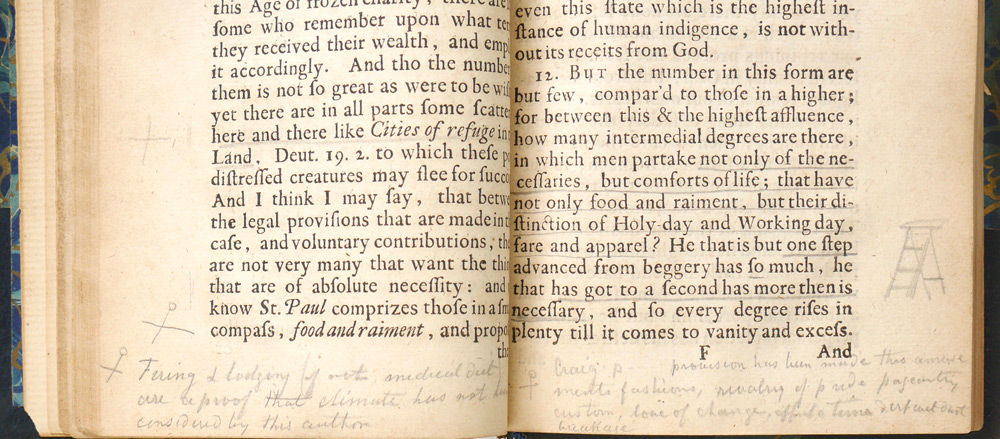 this Age of frozen charity, there are
ſome who remember upon what
they received their wealth, and
it accordingly. And tho the number
them is not ſo great as were to be
yet there are in all parts ſome
here and there like Cities of refuge in
Land, Deut. 19. 2. to which theſe
diſtreſſed creatures may flee for
And I think I may ſay, that
the legal proviſions that are made in
caſe, and voluntary contributions,
are not very many that want the
that are of abſolute neceſſity: and
know St. Paul comprizes thoſe in a
compaſs, food and raiment, and
the
& lodging if not medical diet
are reproof that climate has not
considered by this author
even this ſtate which is the higheſt in-
ſtance of human indigence, is not with-
out its receits from God.
12. BUT the number in this form are
but few, compar'd to thoſe in a higher;
for between this & the higheſt affluence,
how many intermedial degrees are there,
in which men partake not only of the ne-
ceſſaries, but comforts of life; that have
not only food and raiment, but their di-
ſtinction of Holy-day and Working day,
fare and apparel? He that is but one ſtep
advanced from beggery has ſo much, he
that has got to a ſecond has more then is
neceſſary, and ſo every degree riſes in
plenty till it comes to vanity and exceſs.
F And
provision has been made
fashions, rivalry of pride pageantry
custom, love of change,